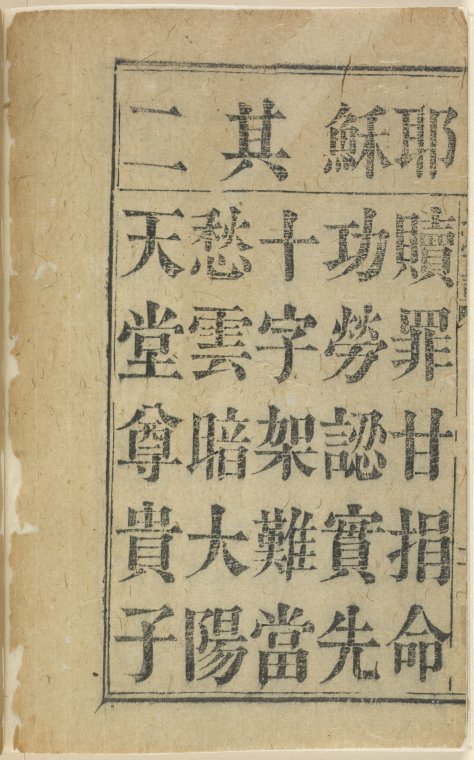 耶穌 其二
贖罪甘捐命
功勞認實先
十字架難當
愁雲暗大陽
天堂尊貴子